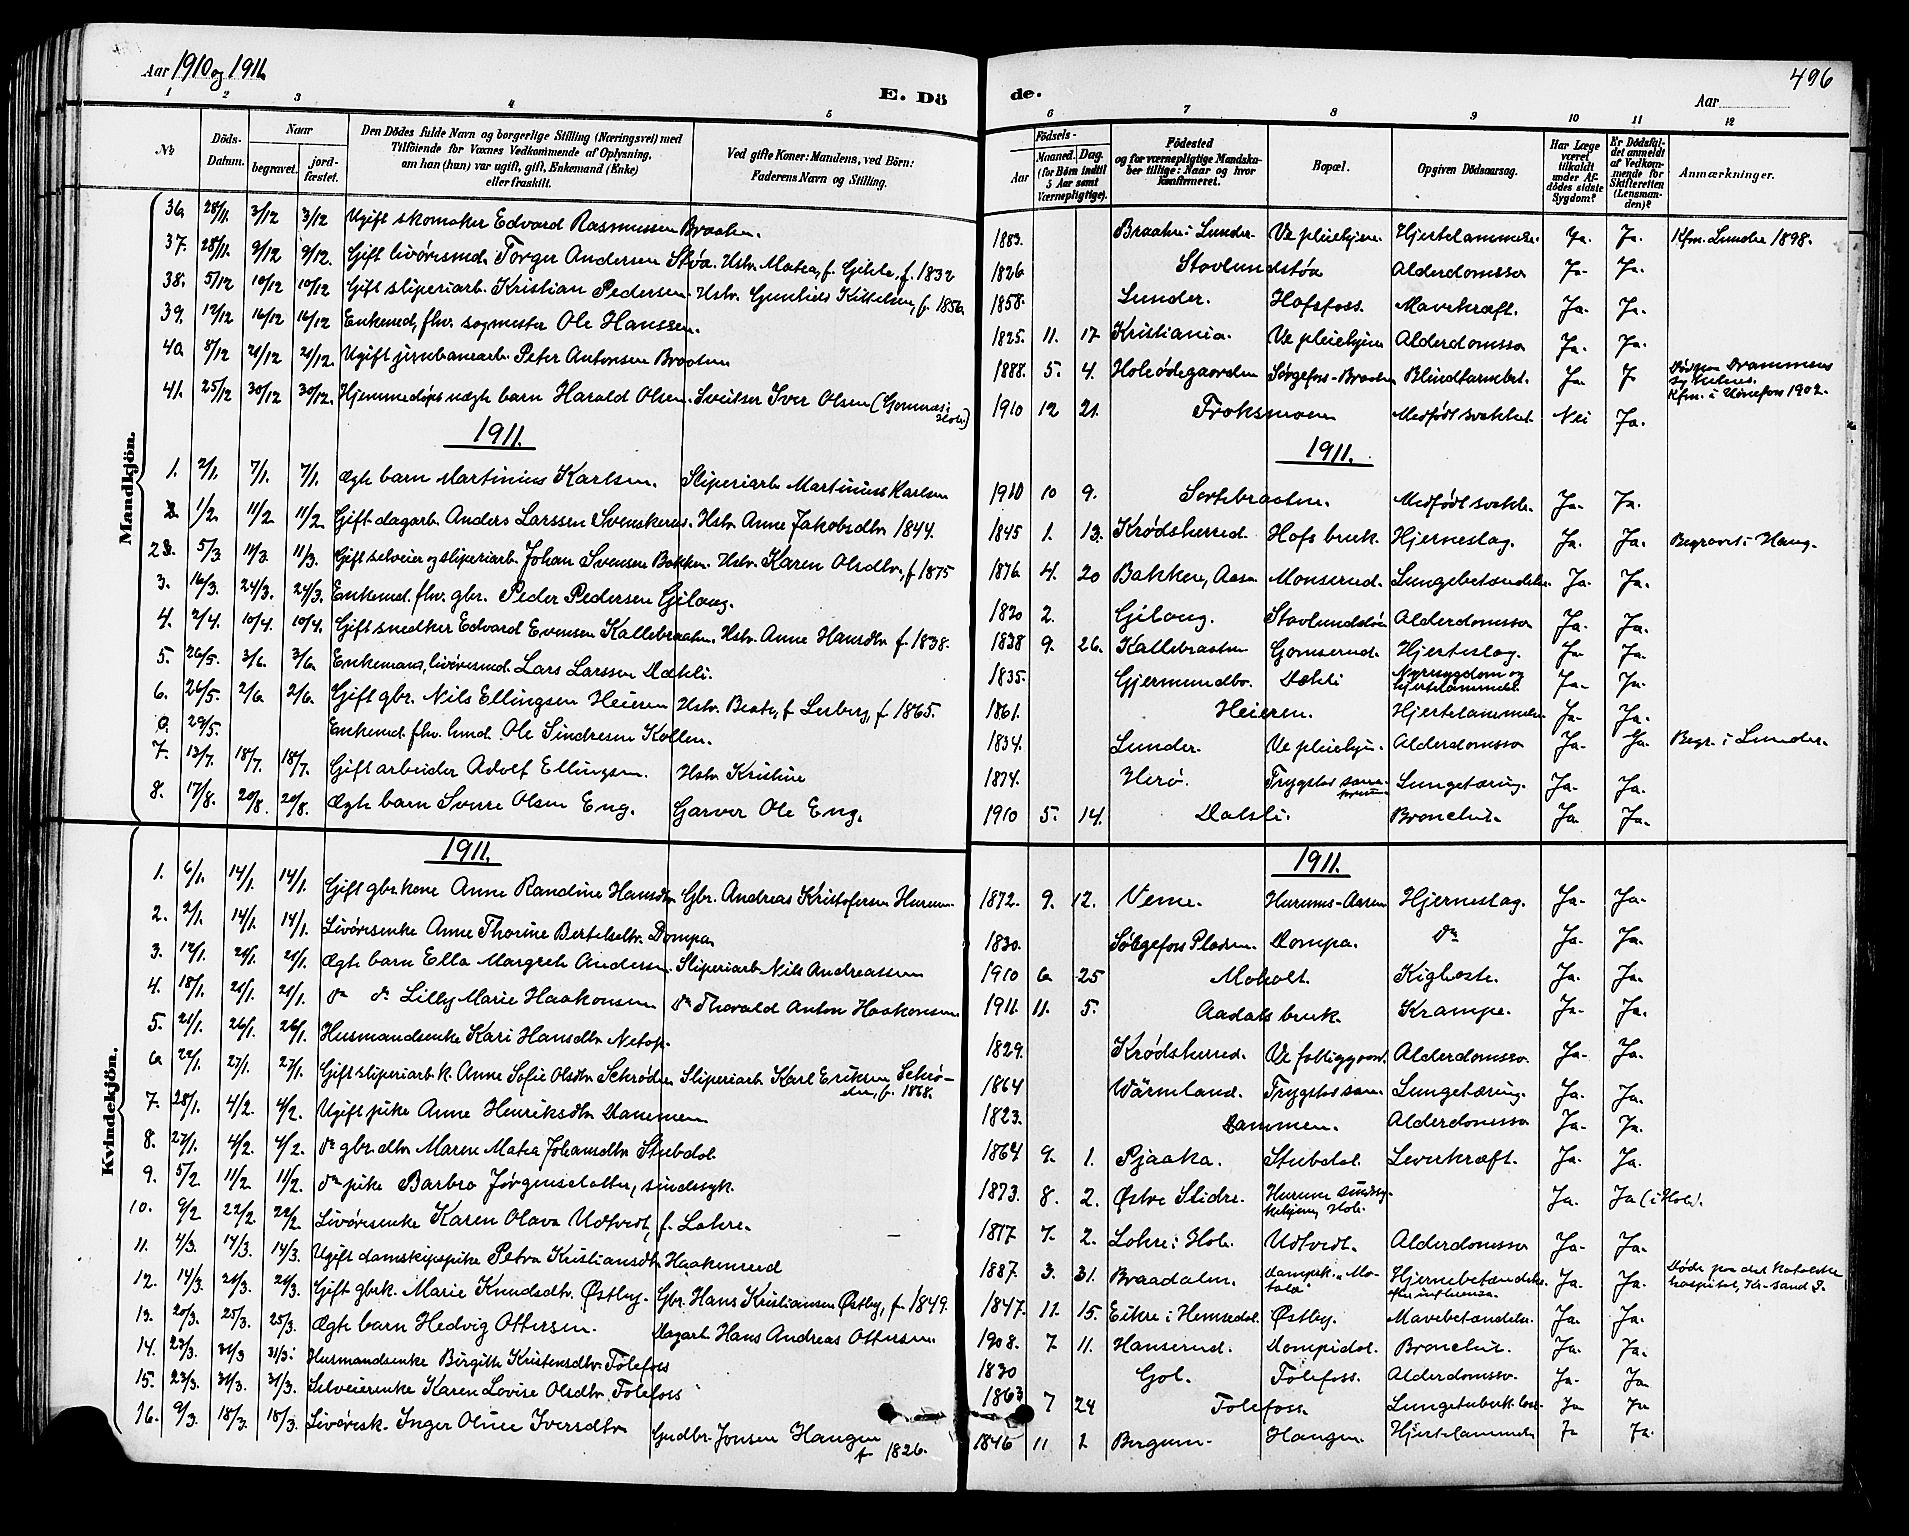 Aar 1910 og 1911.
E. Dö
de.
496
Aar
1 2 3 4 5 6 7 8 9 10 11 12
№
Döds-Datum.
Naar
begravet.
jord-fæstet.
Den Dödes fulde Navn og borgerlige Stilling (Næringsvei) med
Tilföiende for Voxnes Vedkommende af Oplysning,
om han (hun) var ugift, gift, Enkemand (Enke)
eller fraskilt.
Ved gifte Koner: Mandens, ved Börn:
Faderens Navn og Stilling.
Födsels-
Aar
Maaned. Dag.
(for Börn indtil
5 Aar samt
Værnepligtige).
Födested
og for værnepligtige Mandska-
ber tillige: Naar og hvor
konfirmeret.
Bopæl.
Opgiven Dödsaarsag.
Har Læge været tilkaldt under Afdödes sidste Sygdom?
Er Dödsfaldet anmeldt af Vedkommende for Skifteretten (Lensmanden)?
Anmærkninger.
Mandkjön.
36. 28/11. 3/12 3/12 Ugift skomaker Edvard Rasmussen Braaten. 1883. Braaten i Lunder. Ve pleiehjem. Hjertelammelse. Ja. Ja. Kfm. Lunder 1898.
37. 28/11. 9/12 9/12. Gift livöresmd. Torger Andersen Stöa. Hstr. Matea, f. Gihle, f. 1832 1826 Stavlundstöa Alderdomssv Ja. Ja.
38. 5/12 10/12 10/12 Gift sliperiarb. Kristian Pedersen. Hstr. Gunhild Kittelsen, f. 1856. 1858. Lunder. Hofsfoss. Mavekræft. Ja. Ja.
39. 12/12 16/12 16/12 Enkemd, fhv. sagmester Ole Hanssen. 1825. 11. 17. Kristiania. Ve pleiehjem Alderdomssv Ja. Ja.
40 8/12 21/12 21/12. Ugift jernbanearb. Peter Antonsen Braaten 1888. 5. 4. Hole ødegaarden Sørgefoss-Braaten Blindtarmsbet. Ja. J. Död paa Drammens sykehus. Kfm. i Hønefoss 1902.
41. 25/12 30/12 30/12. Hjemmedöpt uægte barn Harald Olsen. Sveitser Iver Olsen (Gomnæs i Hole) 1910 12 21. Troksmoen Medfödt svakhet. Nei Ja.
1911.
1911.
1. 2/1. 7/1. 7/1. Ægte barn Martinius Karlsen. Sliperiarb. Martinius Karlsen 1910 10 9. Sortebraaten. Medfödt svakh. Ja. Ja.
1/2. 11/2 11/2 Gift dagarb. Anders Larssen Svenskerud. Hstr. Anne Jakobsdtr. 1844. 1845 1. 13. Krødsherred. Hofs bruk. Hjerneslag. Ja. Ja. Begravet i Haug.
2. 5/3 11/3. 11/3. Gift selveier og sliperiarb. Johan Svensen Bakken. Hstr. Karen Olsdtr., f. 1875 1876. 4. 20 Bakken, Aasa Monserud. Lungebetændelse Ja. Ja.
3. 16/3. 24/3. 24/3. Enkemd. fhv. gbr. Peder Pedersen Gilaug. 1820 2. Gilaug. Stavlundstöa Alderdomssv Ja. Ja.
4. 2/4. 10/4. 10/4. Gift snedker Edvard Evensen Kallebraaten. Hstr. Anne Hansdtr. f. 1838. 1838 9. 26. Kallebraaten Gomserud. Hjerteslag. Ja Ja.
5. 26/5. 3/6. 3/6. Enkemans, livöresmd. Lars Larssen Dækli. 1835. Gjermundbo. Dækli Nyresygdom og hjertelammelse. Ja. Ja.
6. 26/5. 2/6. 2/6. Gift gbr. Nils Ellingsen Heieren Hstr. Beate, f. Lerberg, f. 1865. 1861. Heieren. Hjertelammelse Ja. Ja.
0. 29/5. Enkemd. fhv. Ole Sindresen Kollen. 1834. Lunder. Ve pleiehjm. Alderdomssv Ja. Ja. Begr. i Lunder.
7. 13/7. 18/7. 18/7. Gift arbeider Adolf Ellingsen. Hstr. Kristine 1874. Herö. Trygstad sanatorium Lungetæring. Ja. Ja.
8. 17/8. 20/8. 20/8. Ægte barn Sverre Olsen Eng. Garver Ole Eng. 1910 5. 14. Dalsli. Bronchit. Ja. Ja.
Kvindekjön.
1911.
1911.
1. 6/1. 14/1. 14/1. Gift gbr.kone Anne Randine Hansdtr. Gbr. Andreas Kristofersen Hurum 1872. 9. 12. Veme. Hurums-Aasen Hjerneslag. Ja. Ja.
2. 2/1. 14/1. 14/1. Livöresenke Anne Thorine Bertelsdtr. Dompa. 1830. Sörgefoss Pladsen. Dompa. Do Ja. Ja.
3. 12/1. 21/1. 21/1. Ægte barn Ella Margrete Andersen. Sliperiarb. Nils Andreassen 1910 6 25 Moholt. Kighoste. Ja. Ja.
4. 18/1. 21/1. 21/1. do do Lilly Marie Haakonsen Do Thorvald Anton Haakonsen 1911. 11. 5. Aadals bruk. Krampe. Ja. Ja.
5. 21/1. 26/1. 26/1. Husmandsenke Kari Hansdtr. Netop. 1829. Krødsherred. Ve fattiggaard. Alderdomssv. Ja. Ja.
6 22/1. 27/1. 27/1. Gift sliperiarb.k. Anne Sofie Olsdtr. Schrøder Sliperiarb. Karl Eriksen Schröder, f. 1868. 1864 Wärmland. Trygstad san. Lungetæring. Ja. Ja.
7. 28/1. 4/2. 4/2. Ugift pike Anne Henriksdtr. Dammen 1823. Dammen. Alderdomssv Ja. Ja.
8. 27/1. 4/2 4/2. do gbr.dtr. Maren Matea Johansdtr. Stubdal 1864 9. 1. Pjaaka. Stubdal. Leverkræft. Ja. Ja.
9. 5/2 11/2 11/2. do pike Barbro Jørgensdatter, sindssyk. 1873. 8. 2. Østre Slidre. Hurum sindssykehjem, Hole. Ja. Ja (i Hole).
10. 9/2 22/2 22/2 Livöresenke Karen Olava Udtvedt, f. Lohre. 1817 7. 2. Lohre i Hole. Udtvedt. Alderdomssv Ja. Ja.
11. 4/3. 14/3. 14/3. Ugift damskipspike Petra Kristiansdtr. Haakenrud 1887. 3. 31. Braadalen. Dampsk. "Motala" Hjernebetændelse efter influenza. Ja. Ja. Döde paa det katolske hospital, Kr.sand S.
12. 14/3. 21/3. 21/3. Gift gbrk. Marie Knudsdtr. Østby. Gbr. Hans Kristiansen Østby, f. 1849. 1847. 11. 15. Eikre i Hemsedal. Østby. Mavebetændelse. Ja. Ja.
13. 20/3. 25/3. 25/3. Ægte barn Hedvig Ottersen. Dagarb. Hans Andreas Ottersen. 1908. 7 11. Hanserud. Dompidal. Bronchit. Ja. Ja.
14. 23/3. 31/3 31/3. Husmandsenke Birgitte Kristensdtr. Tolefoss 1830 Gol. Tolefoss. Alderdomssv. Ja. Ja.
15. 23/3. 31/3. 31/3. Selveierenke Karen Lovise Olsdtr. Tolefoss 1863 7 24 Tolefoss. Lungetuberkulose. Ja Ja
16. 9/3. 18/3. 18/3. Livöresk. Inger Oline Iversdtr. Gudbr. Jonsen Haugen f 1826. 1846 11 2 Bergum. Haugen. Hjertelammelse Ja Ja.